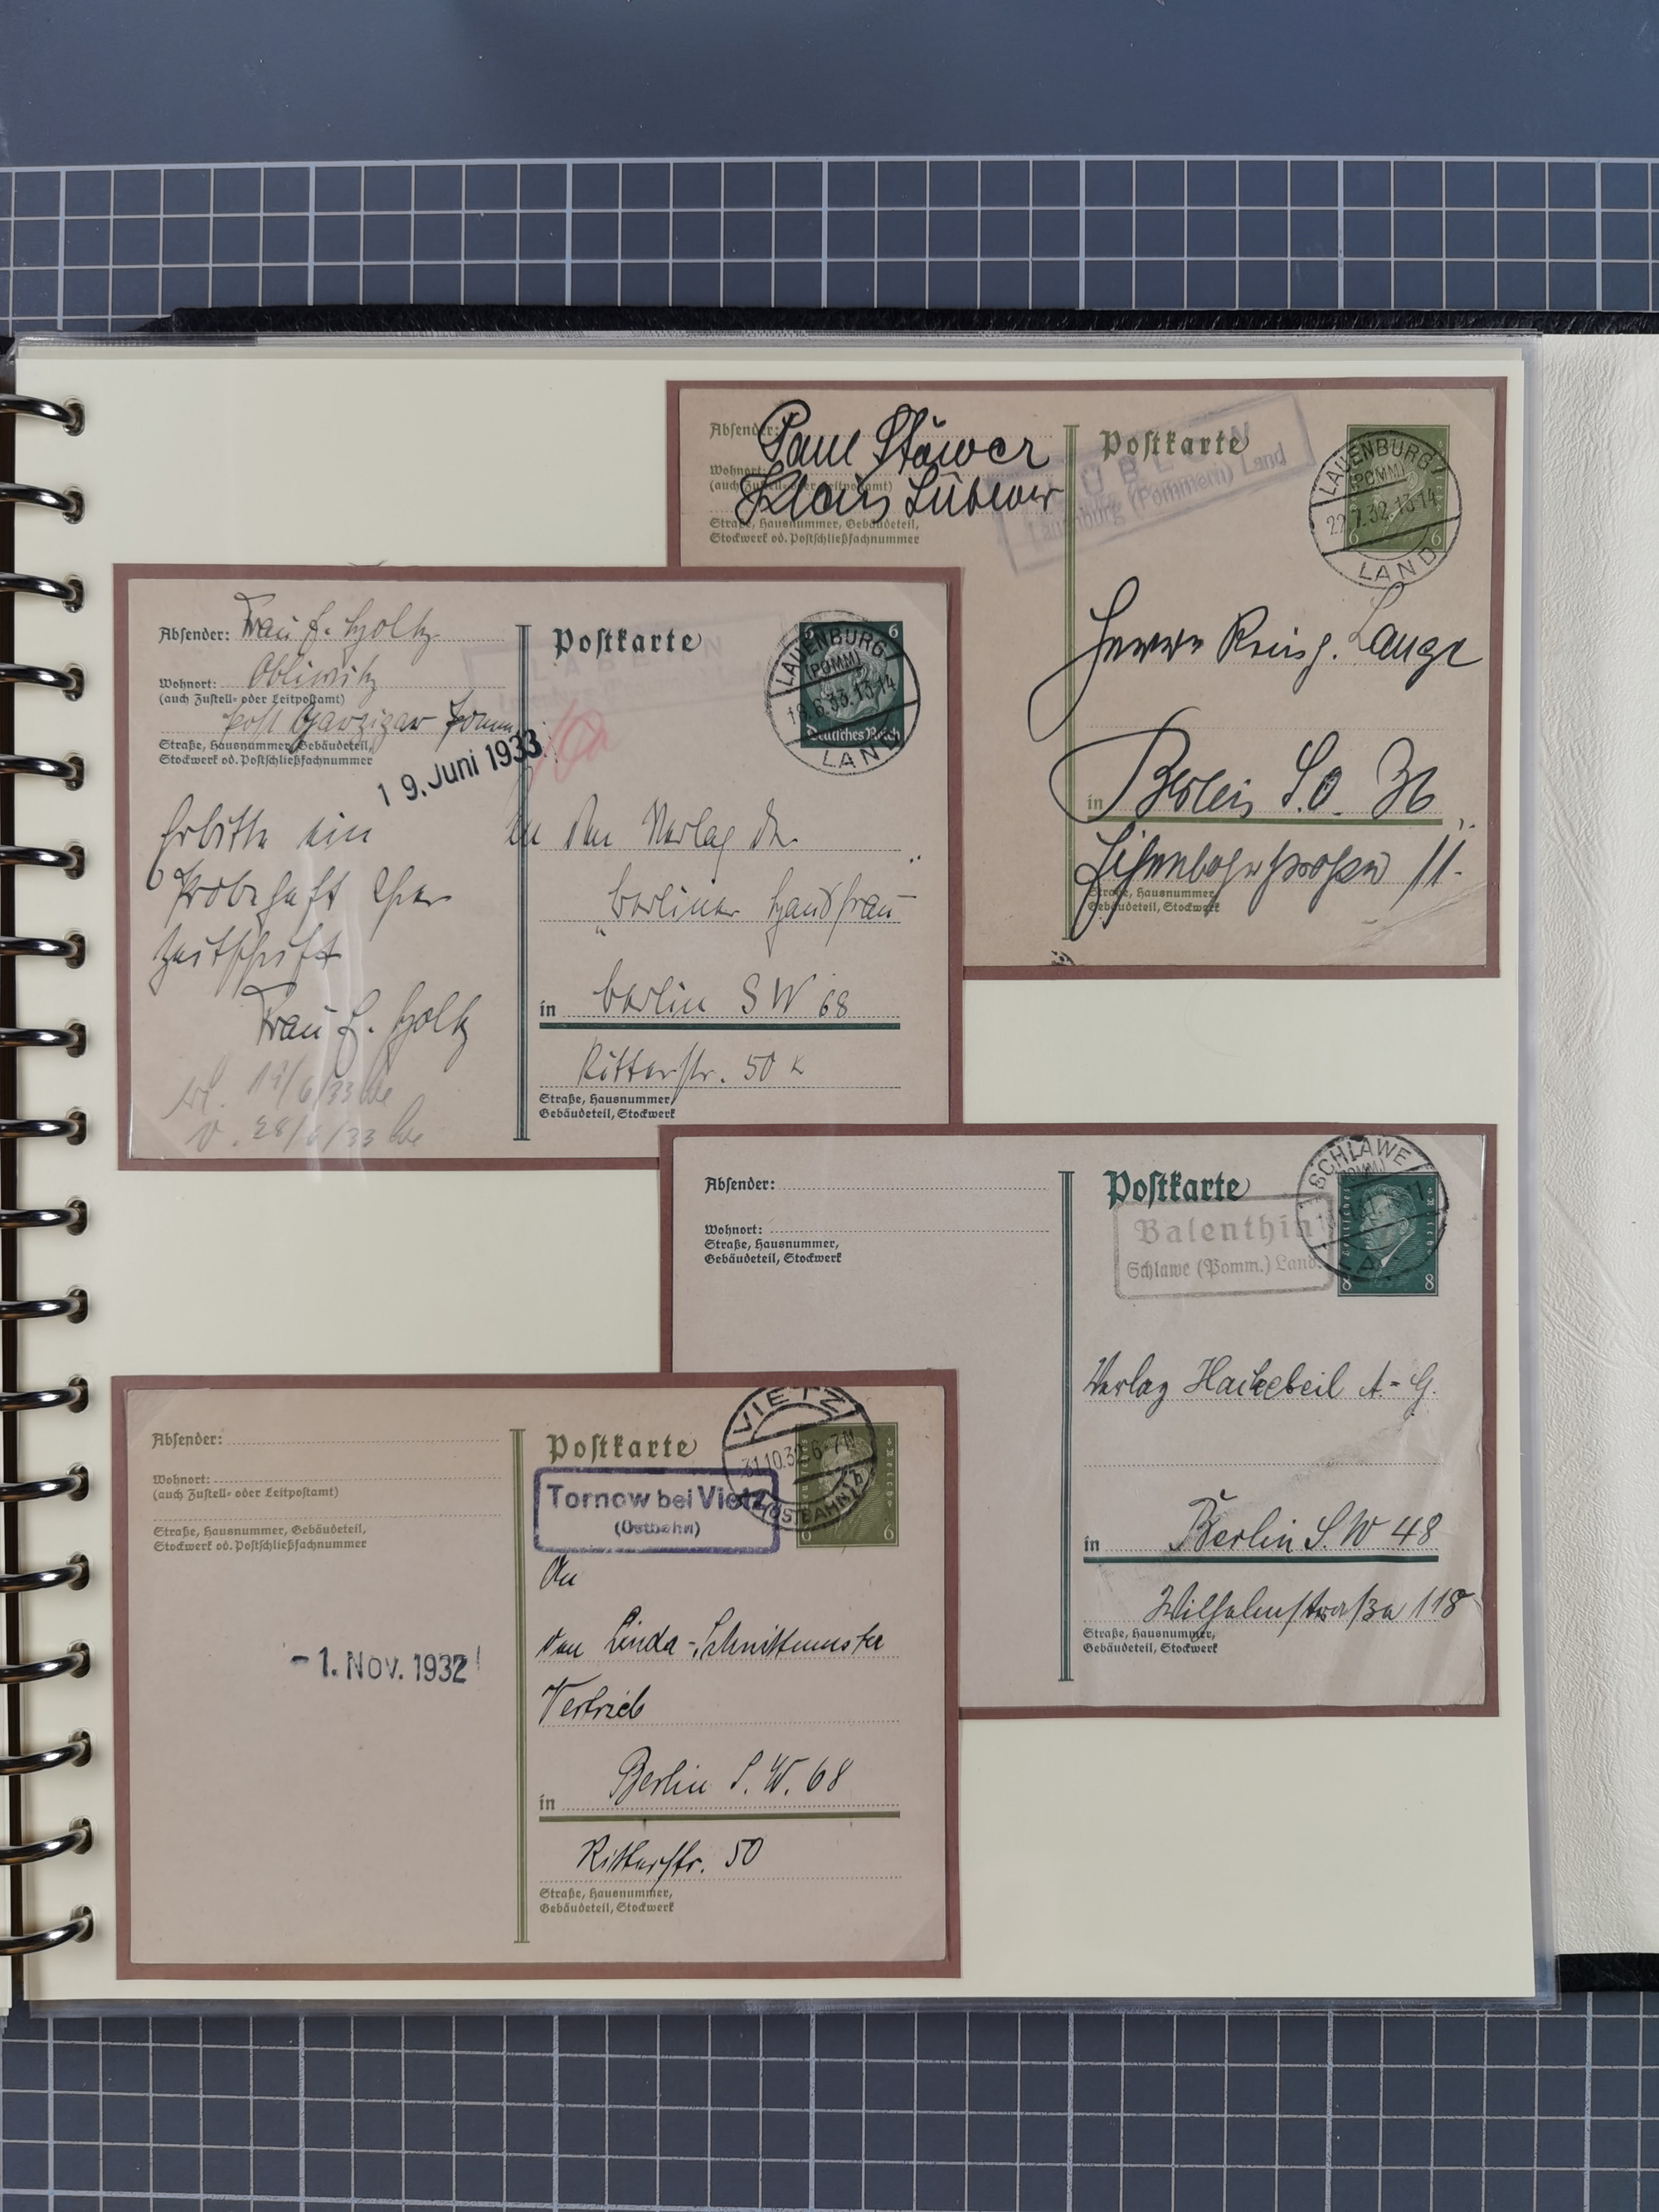 Absender:
Paul Stöwer
Wohnort:
(auch Zustell- oder Leitpostamt)
Klaus Lüblow
Straße, Hausnummer, Gebäudeteil,
Stockwerk od. Postschließfachnummer
Postkarte
Lauenburg (Pommern) Land
LAUENBURG
(POMM)
22.7.32.13-14
LAND
6 6
Herrn
Lange
in Berlin S.O. 36
11.
Straße, Hausnummer
Gebäudeteil, Stockwerk
Absender: Frau E. Holtz
Wohnort: Obliwitz
(auch Zustell- oder Leitpostamt)
Post Garzigar Pomm.
Straße, Hausnummer, Gebäudeteil,
Stockwerk od. Postschließfachnummer
19. Juni 1933
Erbitte ein
Probeheft Ihrer
Zeitschrift
Frau E. Holtz
19/6/33
28/6/33
Postkarte
LAUENBURG
(POMM)
6.33.13-14
LAND
6
Deutsches Reich
An den Verlag der
"Berliner Hausfrau"
in Berlin SW 68
Ritterstr. 50
Straße, Hausnummer,
Gebäudeteil, Stockwerk
Absender:
Wohnort:
Straße, Hausnummer,
Gebäudeteil, Stockwerk
Postkarte
Balenthin
Schlawe (Pomm.) Land
SCHLAWE
(POMM)
8 8
Verlag Hackebeil A-G.
in Berlin S.W 48
Wilhelmstraße 118
Straße, Hausnummer,
Gebäudeteil, Stockwerk
Absender:
Wohnort:
(auch Zustell- oder Leitpostamt)
Straße, Hausnummer, Gebäudeteil,
Stockwerk od. Postschließfachnummer
-1. Nov. 1932
Postkarte
Tornow bei Vietz
(Ostbahn)
VIETZ
31.10.32.6-7N
(OSTBAHN)
b
6 6
An
den Linda-Schnittmuster
Vertrieb
in Berlin S.W. 68
Ritterstr. 50
Straße, Hausnummer,
Gebäudeteil, Stockwerk